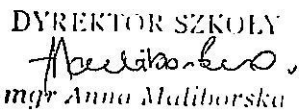 DYREKTOR SZKOŁY
mgr Anna Maliborska